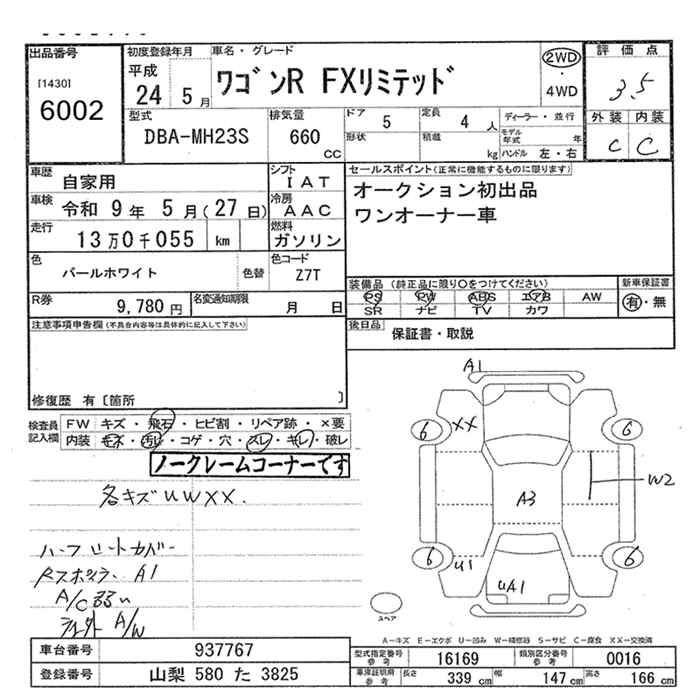 出品番号
[1430]
6002
初度登録年月
平成
24 5月
車名・グレード
ワゴンR FXリミテッド
2WD
・
4WD
評価点
3.5
外装 内装
C C
型式
DBA-MH23S
排気量
660
CC
ドア 5
形状
定員 4 人
積載 kg
ディーラー・並行
モデル年式 年
ハンドル 左・右
車歴 自家用
車検 令和 9年 5月(27日)
走行 13万0千055 km
色 パールホワイト 色替
シフト IAT
冷房 AAC
燃料 ガソリン
色コード Z7T
R券 9,780円
名変通知期限 月 日
セールスポイント(正常に機能するものに限ります)
オークション初出品
ワンオーナー車
装備品(純正品に限り○をつけてください)
PS PW ABS エアB AW
SR ナビ TV カワ
新車保証書
有・無
後日品 保証書・取説
注意事項申告欄(不具合内容等は具体的に記入して下さい)
修復歴 有〔箇所 〕
検査員記入欄
FW キズ・飛石・ヒビ割・リペア跡・×要
内装 キズ・汚レ・コゲ・穴・スレ・キレ・破レ
ノークレームコーナーです
各キズUWXX.
ハーフシートカバー
RスポイラーA1
A/C弱い
社外A/W
A1
6
XX
6
W2
A3
6
U1
UA1
6
スペア
A―キズ E―エクボ U―凹み W―補修器 S―サビ C―腐食 XX―交換済
車台番号 937767
登録番号 山梨 580 た 3825
型式指定番号 参考 16169
類別区分番号 参考 0016
車庫証明用 参考 長さ 339cm 幅 147cm 高さ 166cm